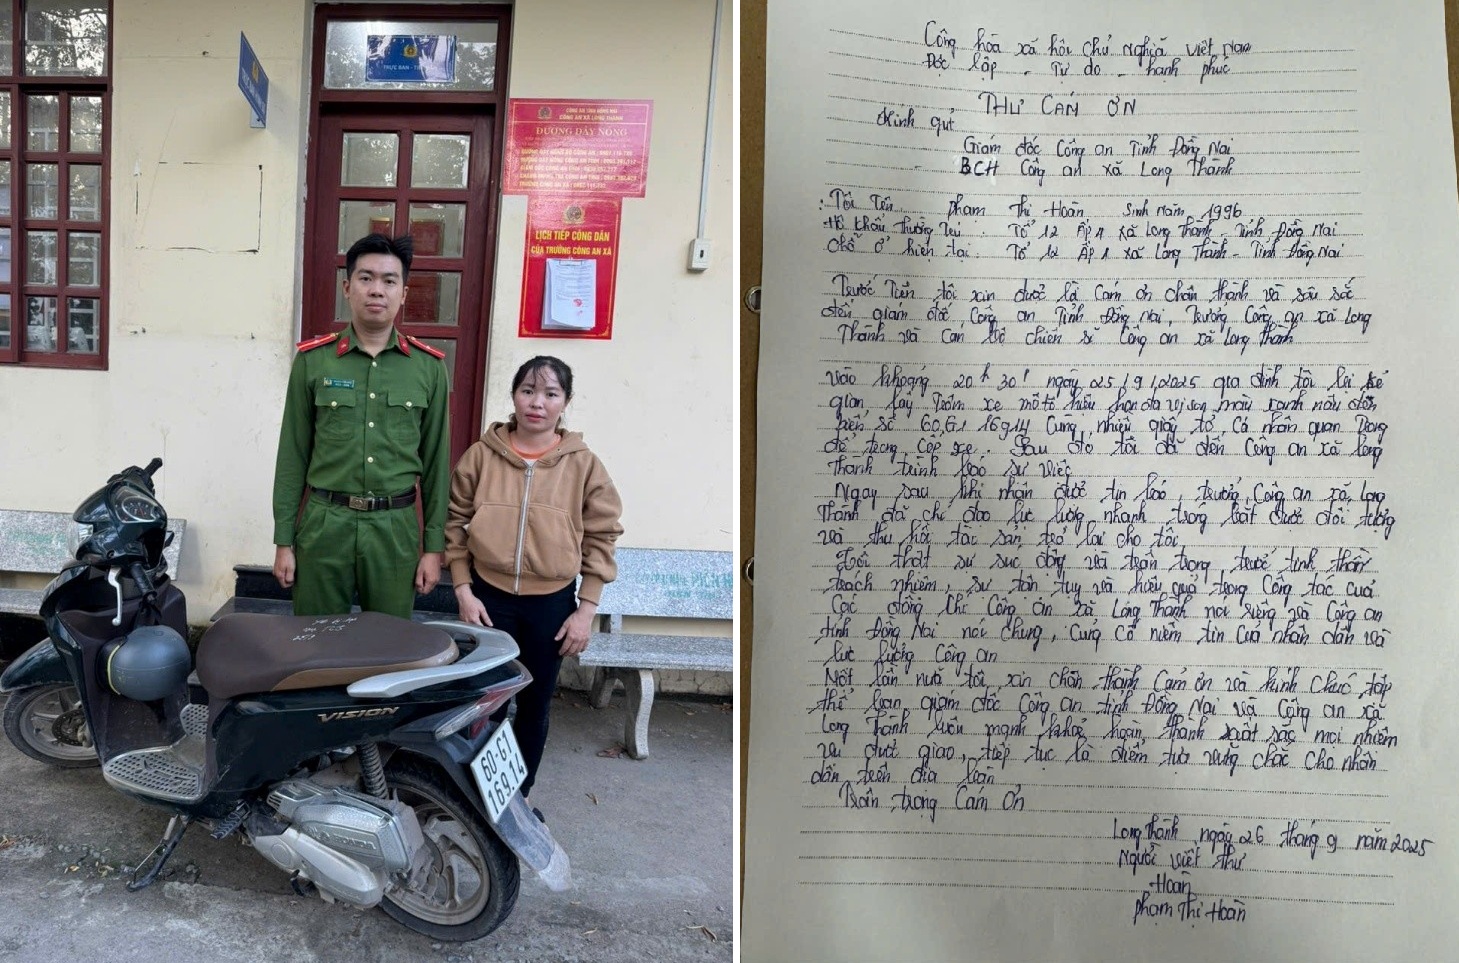 TRỰC BAN - TIẾP
CÔNG AN TỈNH ĐỒNG NAI
CÔNG AN XÃ LONG THÀNH
ĐƯỜNG DÂY NÓNG
LỊCH TIẾP CÔNG DÂN
CỦA TRƯỞNG CÔNG AN XÃ
VISION
HONDA
60-G1
169.14
Cộng hòa xã hội chủ nghĩa việt Nam
Độc lập - Tự do - hạnh phúc
THƯ CẢM ƠN
kính gửi
Giám đốc Công an Tỉnh Đồng Nai
BCH Công an xã Long Thành
Tôi Tên phạm Thị Hoàn Sinh năm 1996
Hộ khẩu thường trú: Tổ 12 Ấp 1 xã Long Thành - Tỉnh Đồng Nai
Chỗ ở hiện tại: Tổ 12 Ấp 1 xã Long Thành - Tỉnh Đồng Nai
Trước Tiên tôi xin được lời Cảm ơn chân thành và sâu sắc
đến giám đốc Công an Tỉnh Đồng Nai, Trưởng Công an xã Long
Thành và Cán bộ chiến sĩ Công an xã Long Thành
Vào khoảng 20h 30' ngày 25/9/2025 gia đình tôi bị kẻ
gian lấy trộm xe mô tô hiệu honda vison màu xanh nâu đen
biển số 60.G1 16914 Cùng nhiều giấy tờ Cá nhân quan trọng
để trong Cốp xe. Sau đó tôi đã đến Công an xã Long
Thành trình báo sự việc
Ngay sau khi nhận được tin báo, trưởng Công an xã Long
Thành đã chỉ đạo lực lượng nhanh tróng bắt được đối tượng
và thu hồi tài sản trả lại cho tôi.
Tôi thật sự xúc động và trân trọng trước tinh thần
trách nhiệm, sự tận tụy và hiệu quả trong Công tác của
Các đồng chí Công an xã Long Thành nói riêng và Công an
tỉnh Đồng Nai nói chung, Củng cố niềm tin của nhân dân và
lực lượng Công an
Một lần nữa tôi xin chân thành Cảm ơn và kính chúc tập
thể ban giám đốc Công an tỉnh Đồng Nai và Công an xã
Long Thành luôn mạnh khỏe hoàn thành suất sắc mọi nhiệm
vụ được giao, tiếp tục là điểm tựa vững chắc cho nhân
dân trên địa bàn
Trân trọng Cảm Ơn
Long Thành ngày 26 tháng 9 năm 2025
Người viết thư
Hoàn
phạm Thị Hoàn